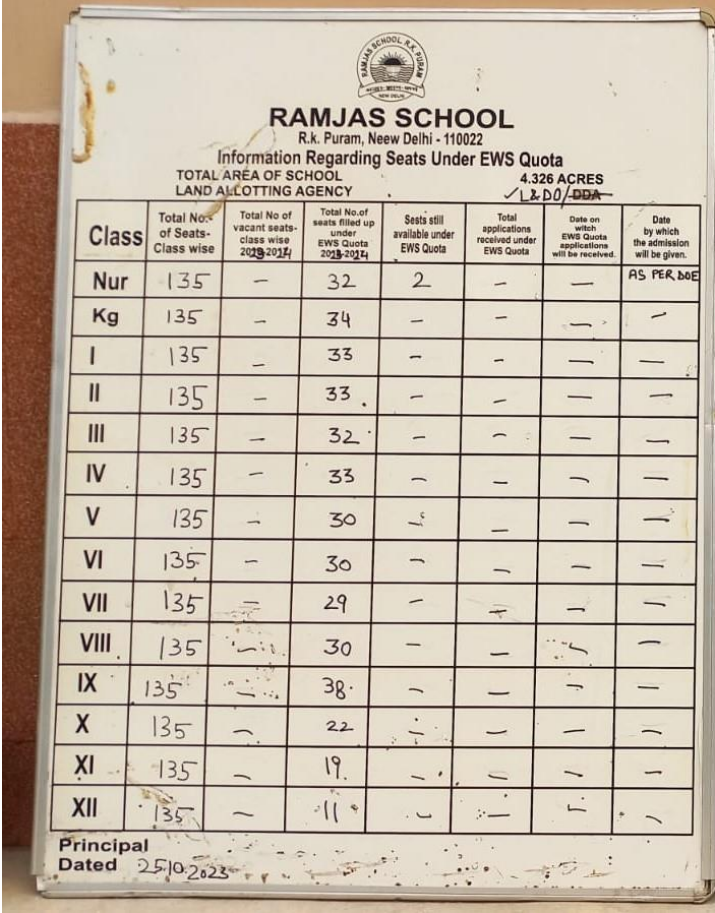 RAMJAS SCHOOL R.K. PURAM
NEW DELHI
RAMJAS SCHOOL
R.k. Puram, Neew Delhi - 110022
Information Regarding Seats Under EWS Quota
TOTAL AREA OF SCHOOL 4.326 ACRES
LAND ALLOTTING AGENCY ✓L&DO/DDA
Class | Total No. of Seats- Class wise | Total No of vacant seats- class wise | Total No.of seats filled up under EWS Quota | Sests still available under EWS Quota | Total applications received under EWS Quota | Date on witch EWS Quota applications will be received. | Date by which the admission will be given.
Nur | 135 | – | 32 | 2 | – | – | AS PER DOE
Kg | 135 | – | 34 | – | – | – | –
I | 135 | – | 33 | – | – | – | –
II | 135 | – | 33 | – | – | – | –
III | 135 | – | 32 | – | – | – | –
IV | 135 | – | 33 | – | – | – | –
V | 135 | – | 30 | – | – | – | –
VI | 135 | – | 30 | – | – | – | –
VII | 135 | – | 29 | – | – | – | –
VIII | 135 | – | 30 | – | – | – | –
IX | 135 | – | 38 | – | – | – | –
X | 135 | – | 22 | – | – | – | –
XI | 135 | – | 19 | – | – | – | –
XII | 135 | – | 11 | – | – | – | –
Principal
Dated 25.10.2023